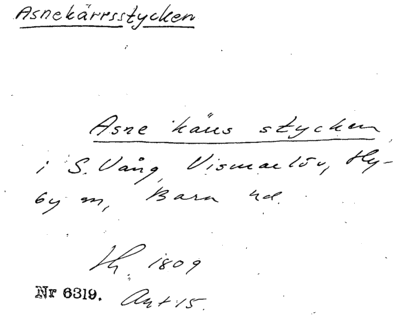 Asnekärrsstycken
Asne kärrs stycken
i S. Vång, Vismarlöv, Hy-
by m, Bara hd.
Lh. 1809
Nr 6319. Akt 15.